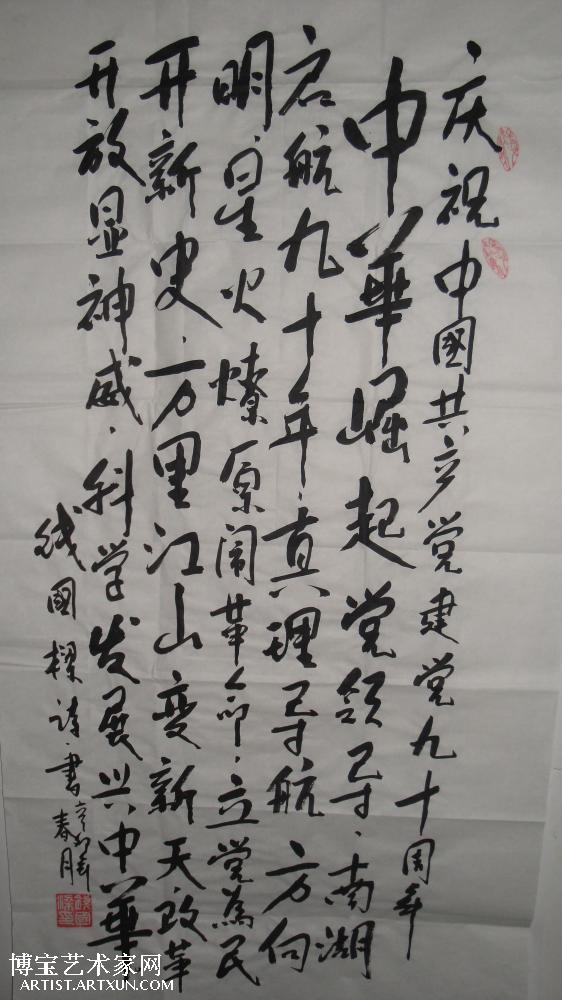 庆祝中國共产党建党九十周年
中華崛起党領导、南湖
启航九十年、真理导航方向
明、星火燎原闹革命、立党為民
开新史、万里江山变新天改革
开放显神威、科学发展兴中華
钱國樑诗、書辛卯年
春月
博宝艺术家网
ARTIST.ARTXUN.COM